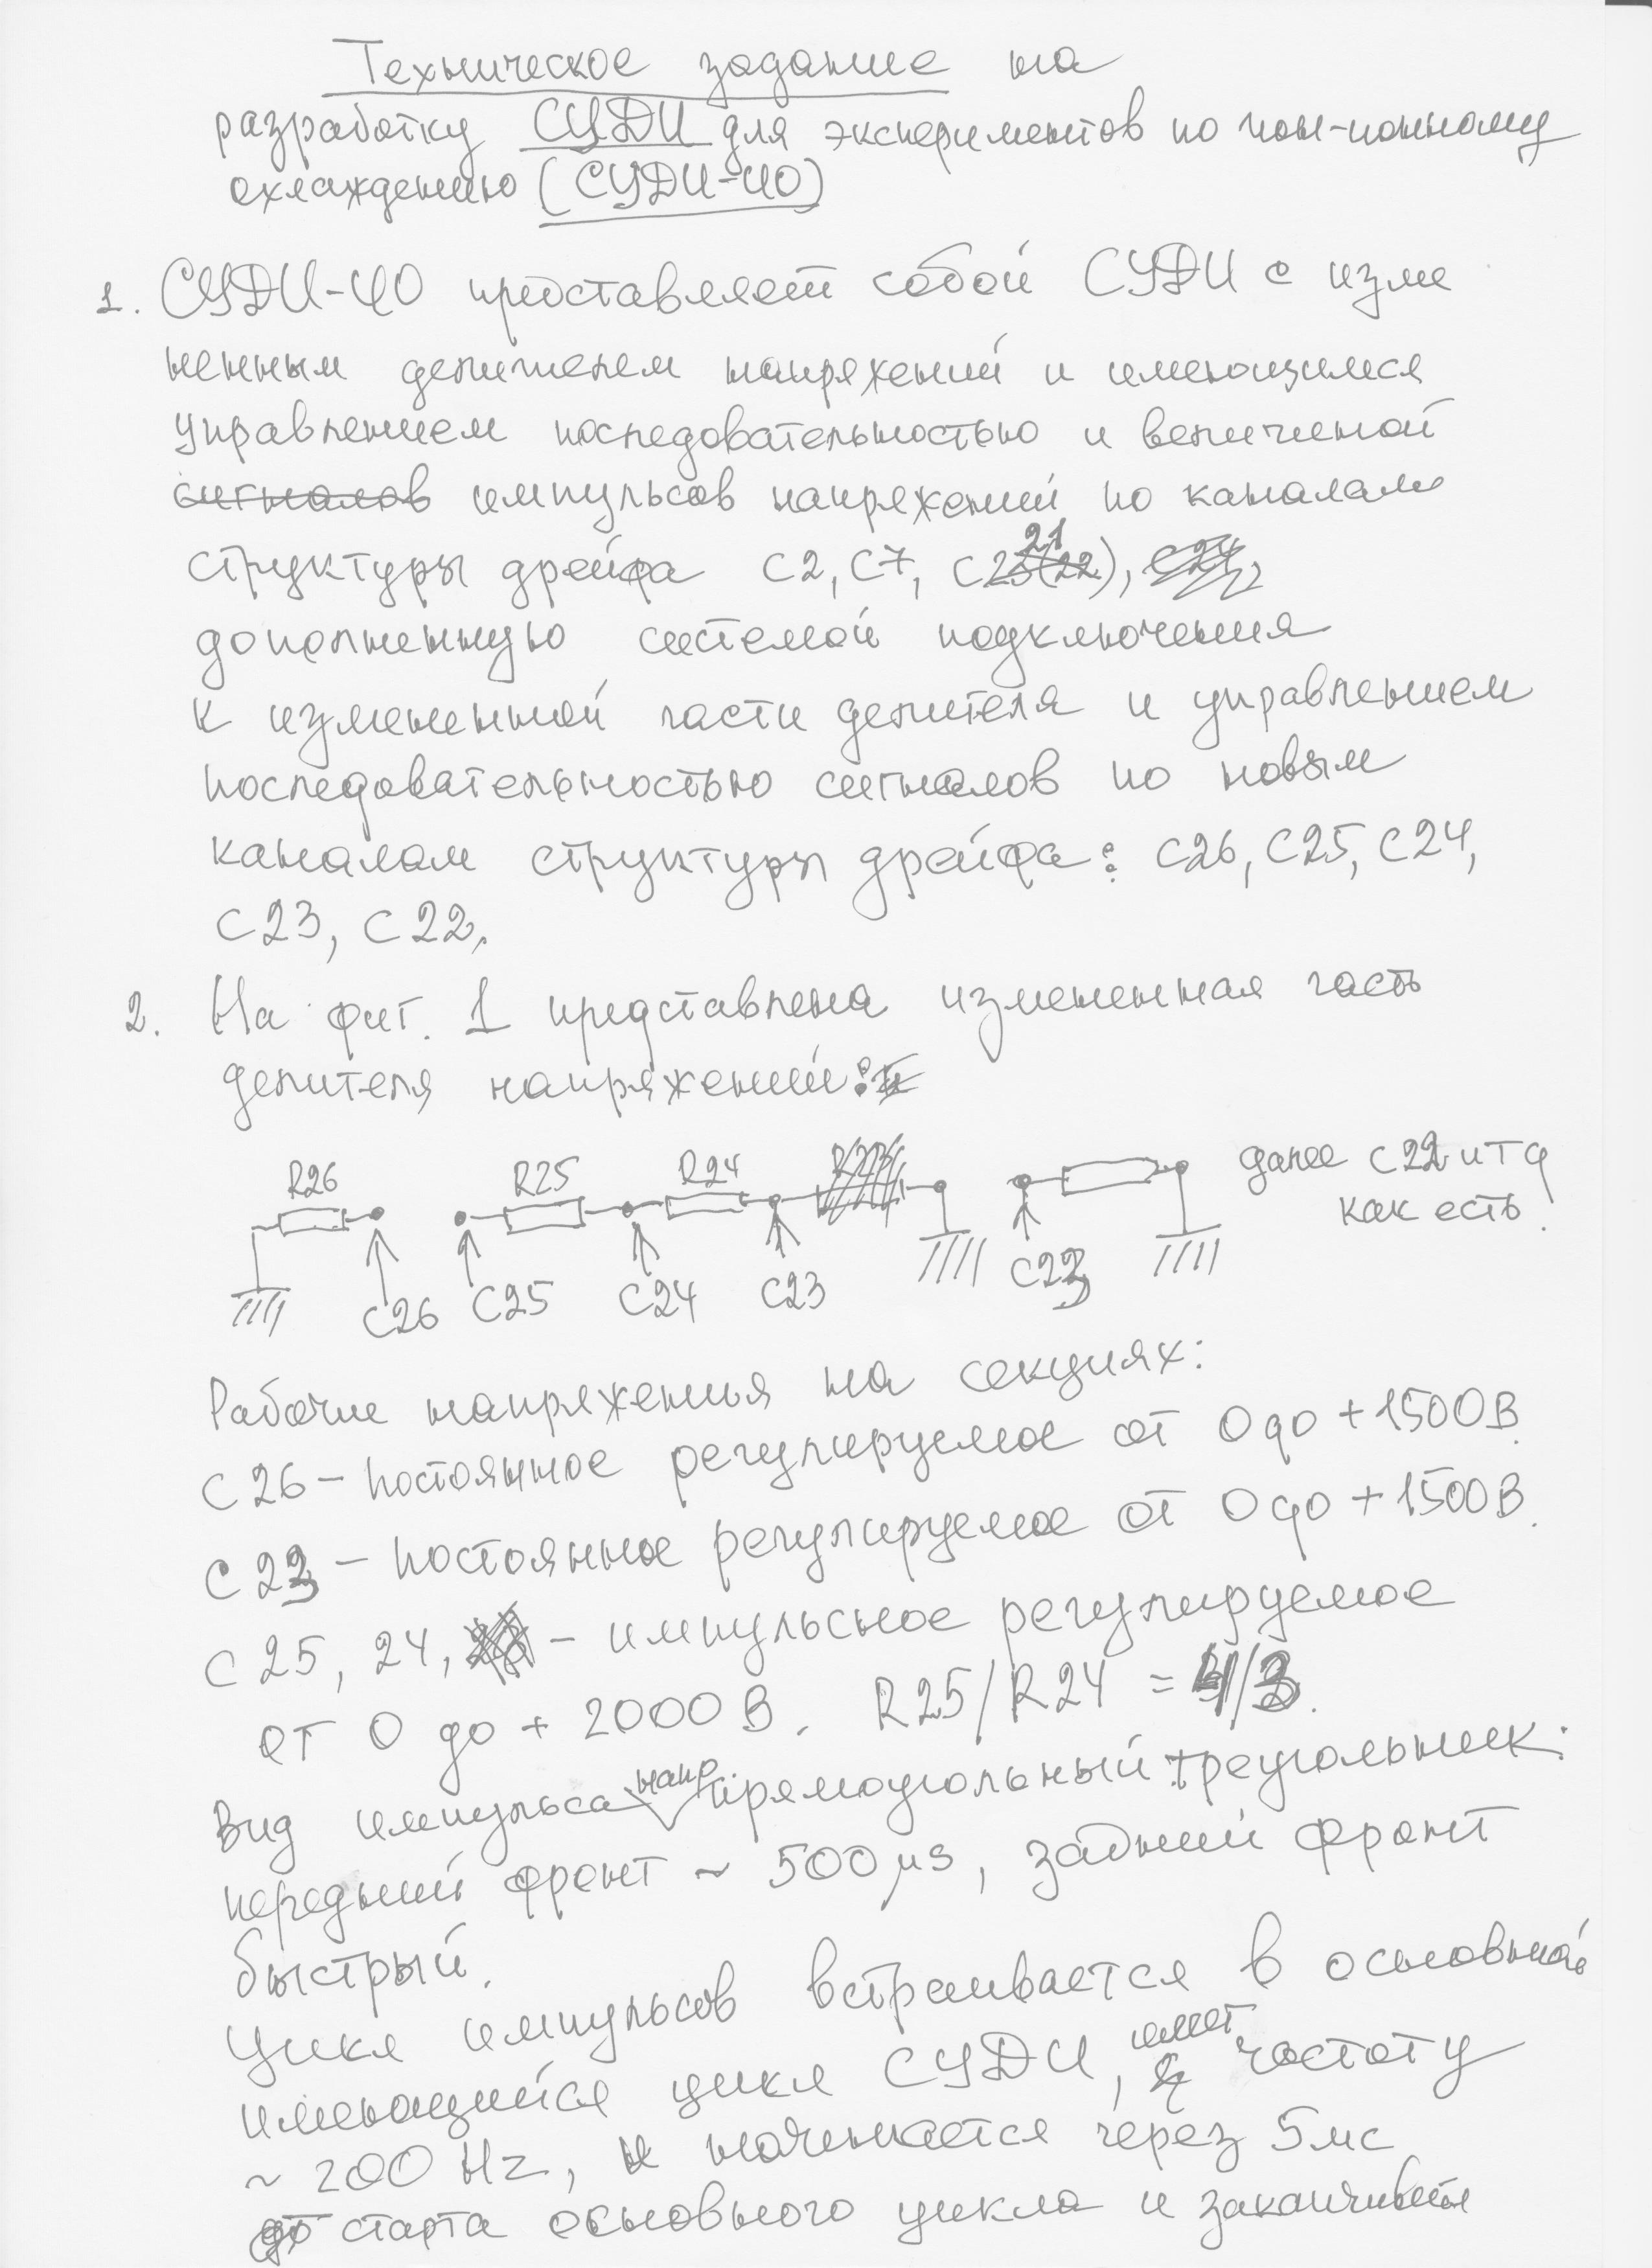 Техническое задание на
разработку СУДИ для экспериментов по ион-ионному
охлаждению (СУДИ-ИО)
1. СУДИ-ИО представляет собой СУДИ с изме
ненным делителем напряжений и имеющимся
управлением последовательностью и величиной
сигналов импульсов напряжений по каналам
структуры дрейфа С2, С7, С21
дополненную системой подключения
к измененной части делителя и управлением
последовательностью сигналов по новым
каналам структуры дрейфа: С26, С25, С24,
С23, С22.
2. На фиг. 1 представлена измененная часть
делителя напряжений:
R26 R25 R24 R23 далее С22 и т д
как есть.
С26 С25 С24 С23 С23
Рабочие напряжения на секциях:
С26 – постоянное регулируемое от 0 до +1500В.
С23 – постоянное регулируемое от 0 до +1500В.
С25, 24, – импульсное регулируемое
от 0 до +2000В. R25/R24 = 4/3.
Вид импульса напр. прямоугольный треугольник:
передний фронт ~ 500 μs, задний фронт
быстрый.
Цикл импульсов встраивается в основной
имеющийся цикл СУДИ, имеет частоту
~ 200 Hz, и начинается через 5 мс
от старта основного цикла и заканчивается